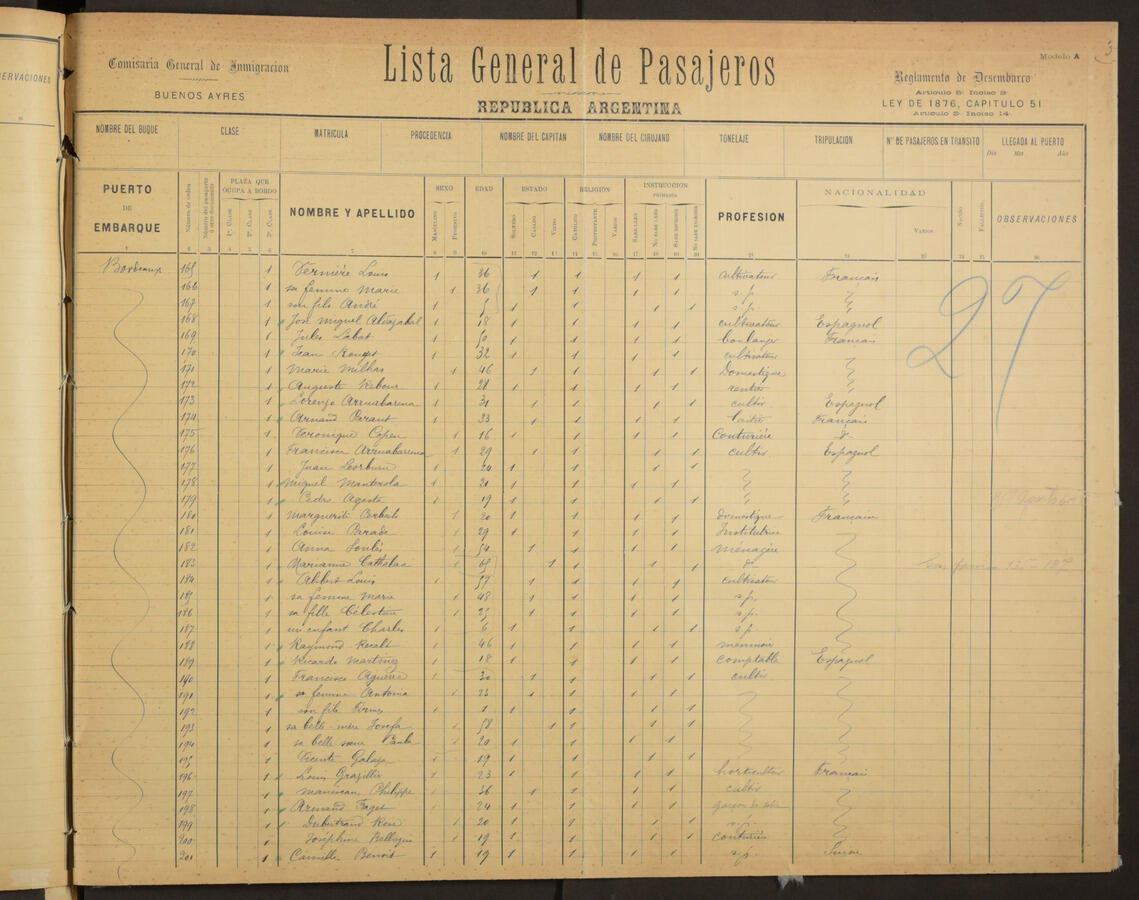 ERVACIONES
Comisaria General de Inmigracion
BUENOS AYRES
Lista General de Pasajeros
REPUBLICA ARGENTINA
Modelo A
3
Reglamento de Desembarco
Articulo 5º Inciso 3º
LEY DE 1876, CAPITULO 51
Articulo 2º Inciso 14º
NOMBRE DEL BUQUE CLASE MATRICULA PROCEDENCIA NOMBRE DEL CAPITAN NOMBRE DEL CIRUJANO TONELAJE TRIPULACION Nº DE PASAJEROS EN TRANSITO LLEGADA AL PUERTO
Dia Mes Año
PUERTO DE EMBARQUE
Número de orden
PLAZA QUE OCUPA A BORDO
1ª CLASE 2ª CLASE 3ª CLASE
NOMBRE Y APELLIDO
SEXO
MASCULINO FEMENINO
EDAD
ESTADO
SOLTERO CASADO VIUDO
RELIGION
CATOLICO PROTESTANTE VARIOS
INSTRUCCION PRIMARIA
SABE LEER NO SABE LEER SABE ESCRIBIR NO SABE ESCRIBIR
PROFESION
NACIONALIDAD
VARIOS
OBSERVACIONES
27
Bordeaux 165 1 Vernière Louis 1 36 1 1 1 1 cultivateur Français
166 1 sa femme Marie 1 36 1 1 1 1 s/p. "
167 1 son fils André 1 5 1 1 1 1 s/p. "
168 1 José Miguel 1 18 1 1 1 1 cultivateur Espagnol
169 1 Jules Labat 1 50 1 1 1 1 boulanger Français
170 1 Jean 1 32 1 1 1 1 cultivateur "
171 1 Marie Milhas 1 46 1 1 1 1 Domestique "
172 1 Auguste Rebour 1 28 1 1 1 1 rentier "
173 1 Lorenzo Arruabarena 1 31 1 1 1 1 cultir Espagnol
174 1 Arnaud 1 33 1 1 1 1 Français
175 1 Veronique Copen 1 16 1 1 1 1 Couturière dº
176 1 Francisca Arruabarena 1 29 1 1 1 1 cultir Espagnol
177 1 Juan 1 24 1 1 1 1 " "
178 1 Miguel Manterola 1 21 1 1 1 1 " "
179 1 Pedro Agesta 1 19 1 1 1 1 " "
180 1 Marguerite 1 20 1 1 1 1 domestique Française
181 1 Louise Parade 1 29 1 1 1 1 Institutrice
182 1 Anna Soulès 1 54 1 1 1 1 menagère
183 1 Marianne Cathalaa 1 65 1 1 1 1 dº
184 1 Alibert Louis 1 57 1 1 1 1 cultivateur
185 1 sa femme Marie 1 48 1 1 1 1 s/p.
186 1 sa fille Célestine 1 25 1 1 1 1 s/p.
187 1 un enfant Charles 1 6 1 1 1 1 s/p.
188 1 Raymond 1 46 1 1 1 1
189 1 Ricardo Martinez 1 18 1 1 1 1 comptable Espagnol
190 1 Francisco Aguerre 1 30 1 1 1 1 cultir
191 1 sa femme Antonia 1 23 1 1 1 1
192 1 son fils 1 1 1 1 1 1
193 1 sa belle-mère Josefa 1 58 1 1 1 1
194 1 sa belle soeur Paula 1 20 1 1 1 1
195 1 Vicente 1 19 1 1 1 1
196 1 Louis 1 23 1 1 1 1 horticulteur Français
197 1 Philippe 1 36 1 1 1 1 cultir
198 1 Armand Faget 1 24 1 1 1 1 garçon de
199 1 1 20 1 1 1 1 s/p.
200 1 Joséphine 1 19 1 1 1 1 couturière
201 1 Camille Benoit 1 19 1 1 1 1 s/p. Suisse